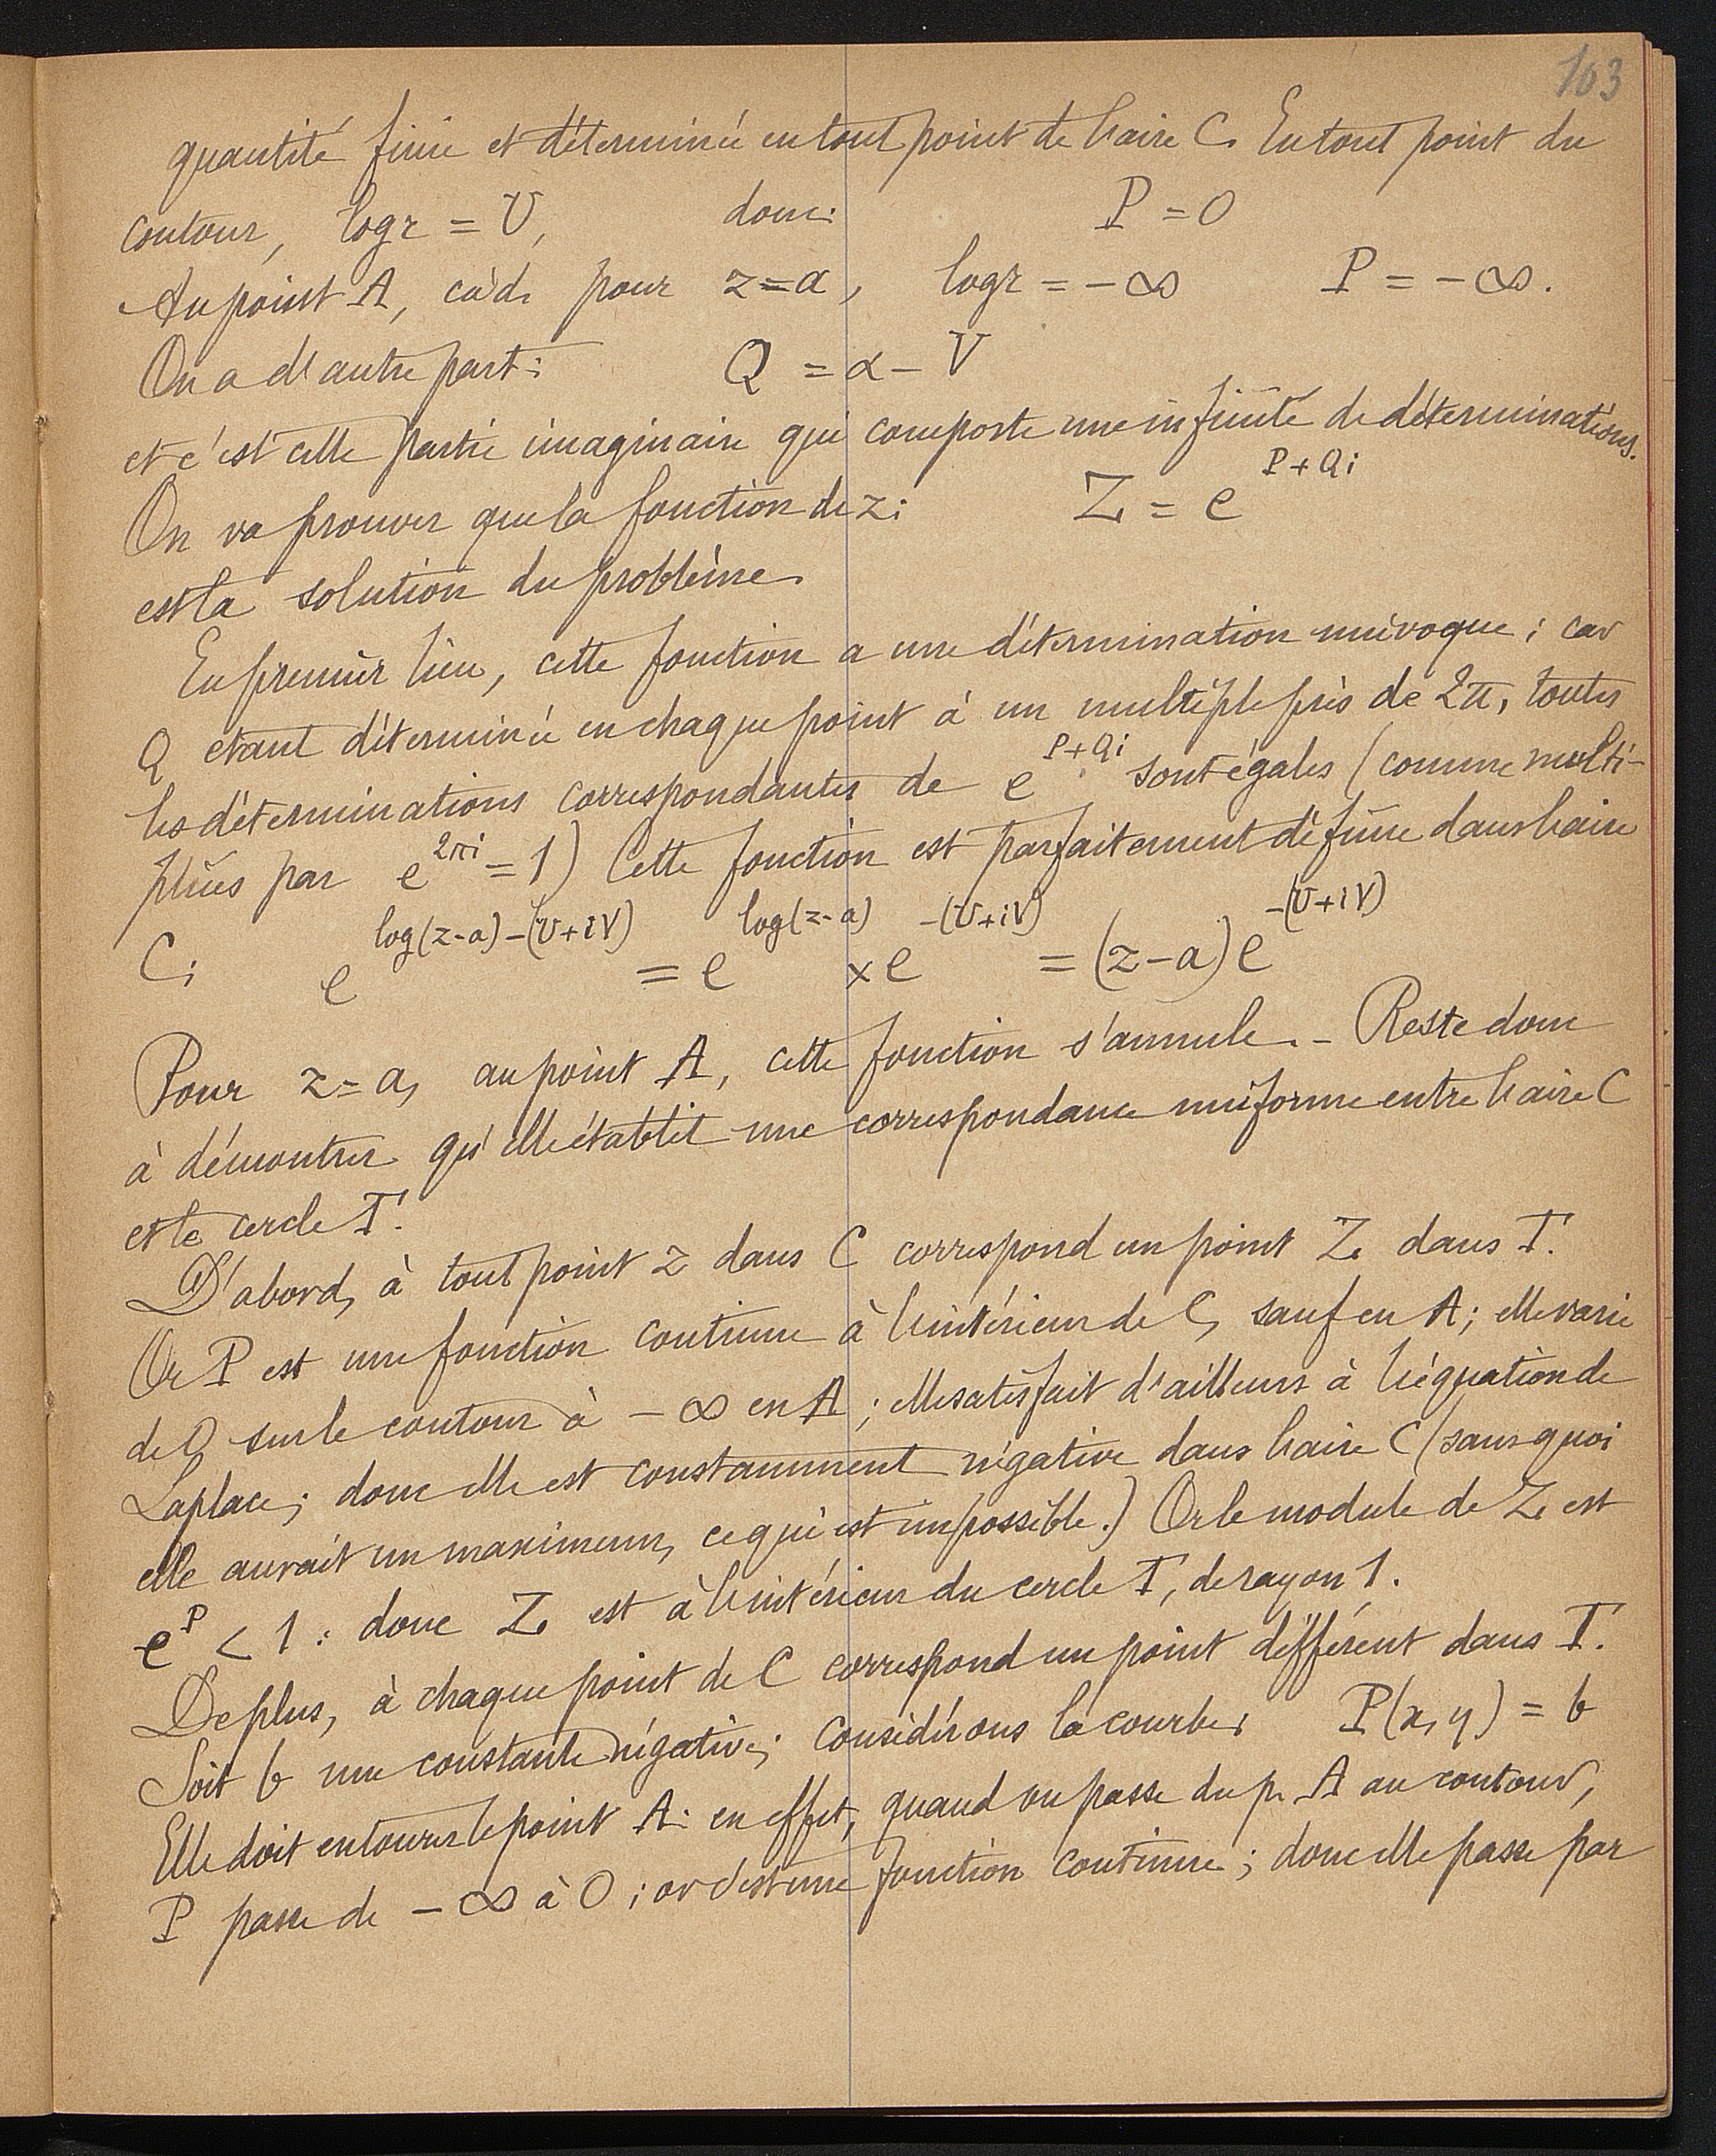 103
quantité finie et déterminée en tout point de l'aire C. En tout point du
contour, log r = U, donc: P = 0
Au point A, càd. pour z = a, log r = -∞ P = -∞.
On a d'autre part: Q = α - V
et c'est cette partie imaginaire qui comporte une infinité de déterminations.
On va prouver que la fonction de z: Z = e^{P+Qi}
est la solution du problème.
En premier lieu, cette fonction a une détermination univoque; car
Q étant déterminée en chaque point à un multiple près de 2π, toutes
les déterminations correspondantes de e^{P+Qi} sont égales (comme multi-
pliées par e^{2πi} = 1) Cette fonction est parfaitement définie dans l'aire
C: e^{log(z-a)-(U+iV)} = e^{log(z-a)} × e^{-(U+iV)} = (z-a)e^{-(U+iV)}
Pour z = a, au point A, cette fonction s'annule. - Reste donc
à démontrer qu'elle établit une correspondance uniforme entre l'aire C
et le cercle Γ.
D'abord, à tout point z dans C correspond un point Z dans Γ.
Or P est une fonction continue à l'intérieur de C, sauf en A; elle varie
de 0 sur le contour à -∞ en A; elle satisfait d'ailleurs à l'équation de
Laplace; donc elle est constamment négative dans l'aire C (sans quoi
elle aurait un maximum, ce qui est impossible.) Or le module de Z est
e^P < 1: donc Z est à l'intérieur du cercle Γ, de rayon 1.
De plus, à chaque point de C correspond un point différent dans Γ.
Soit b une constante négative; considérons la courbe: P(x,y) = b
Elle doit entourer le point A: en effet, quand on passe du p. A au contour,
P passe de -∞ à 0; or c'est une fonction continue; donc elle passe par